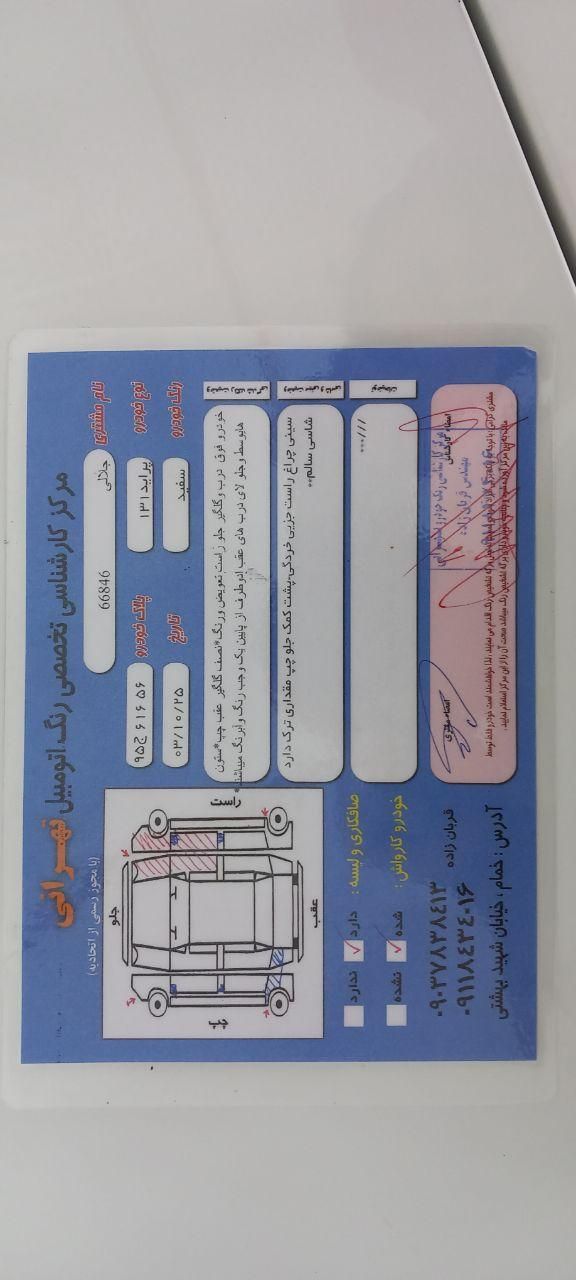 مرکز کارشناسی تخصصی رنگ اتومبیل تهرانی
(با مجوز رسمی از اتحادیه)
نام مشتری
جلالی
66846
نوع خودرو
پراید ۱۳۱
پلاک خودرو
۹۵ج ۶۱۶ ۵۶
رنگ خودرو
سفید
تاریخ
۰۳/۱۰/۲۵
خودرو فوق درب و گلگیر جلو راست تعویض ورنگ*نصف گلگیر عقب چپ*ستون
هاوسط وجلو لای درب های عقب ازدوطرف از پایین یک وجب رنگ وآبرنگ میباشد*
سینی چراغ راست جزیی خردگی-پشت کمک جلو چپ مقداری ترک دارد
شاسی سالم**
توضیحات
***///
جلو
راست
عقب
چپ
صافکاری و لیسه :
دارد
ندارد
خودرو کارواش :
شده
نشده
امضاء کارشناس
مرکز کارشناسی رنگ خودرو تهرانی
مهندس قربان زاده
امضاء مشتری
۰۹۰۳۷۸۳۸۴۱۳
قربان زاده
۰۹۱۱۸۴۳۴۰۱۶
آدرس : خمام ، خیابان شهید بهشتی